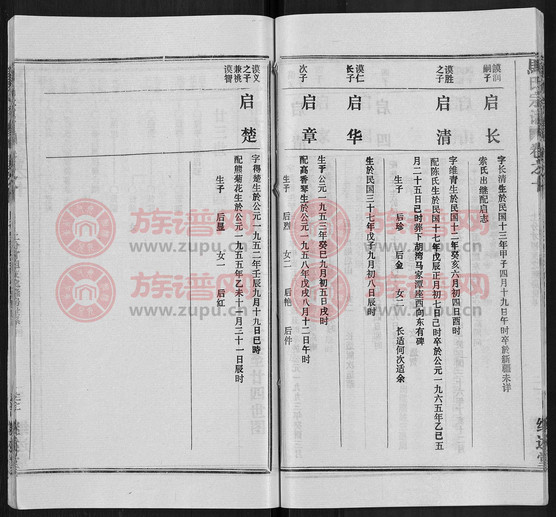 馬氏宗譜
谟润嗣子
启长
字长清生於民国十三年甲子四月十九日午时卒於新疆未详
索氏出继配启志
谟胜之子
启清
字维青生於民国十二年癸亥六月初四日酉时
配陈氏生於民国十七年戊辰正月初七日巳时卒於公元一九六五年乙巳五
月二十五日巳时葬下胡湾马家潭座西向东有碑
生子 后珍 后金 女二 长适何次适余
谟仁长子
启华
生於民国三十七年戊子九月初八日辰时
次子
启章
生于公元一九五三年癸巳九月初五日戌时
配高香琴生於公元一九五八年戊戌八月十二日午时
生子 后烈 女二 后艳 后件
谟义之子兼祧
启楚
字得楚生於公元一九五二年壬辰九月十九日巳时
配熊菊花生於公元一九五五年乙未十二月三十一日辰时
生子 后显 女一 后红
族谱网
www.zupu.cn